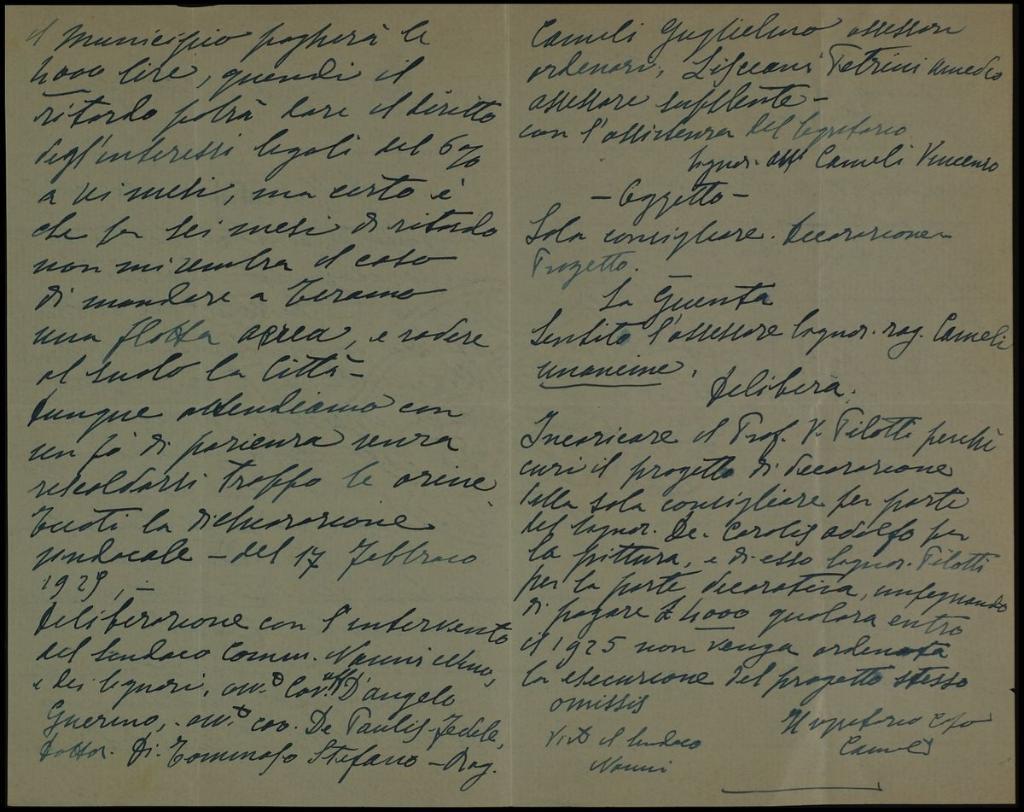 il Municipio pagherà le
4000 lire, quindi il
ritardo potrà dare il diritto
degl'interessi legali del 6%
a mesi, ma certo è
che per sei mesi di ritardo
non mi sembra il caso
di mandare a Teramo
una flotta aerea, e radere
al suolo la Città –
Dunque attendiamo con
un pò di pazienza senza
riscaldarsi troppo le orine
la dichiarazione
sindacale – del 17 Febbraio
192
Deliberazione con l'intervento
del Sindaco Comm. Nanni Nino,
e dei Signori, avv.to Cav. D'Angelo
Guerino, avv.to cav. De Paulis Fedele,
Dottor. Di Tommaso Stefano – Rag.
Cameli Guglielmo assessori
ordinari, Lisciani Petrini Amedeo
assessore supplente –
con l'assistenza del Segretario
Signor. Cameli Vincenzo
– Oggetto –
Sala consigliare. Decorazione
Progetto.
La Giunta
Sentito l'assessore Signor. rag. Cameli
unanime,
Delibera.
Incaricare il Prof. V. Pilotti perchè
curi il progetto di decorazione
della sala consigliare per parte
del Signor. De. Carolis Adolfo per
la pittura, e di esso Signor. Pilotti
per la parte decorativa, impegnando
di pagare £ 4000 qualora entro
il 1925 non venga ordinata
la esecuzione del progetto stesso
omissis
Il segretario capo
Cameli
Visto il Sindaco
Nanni